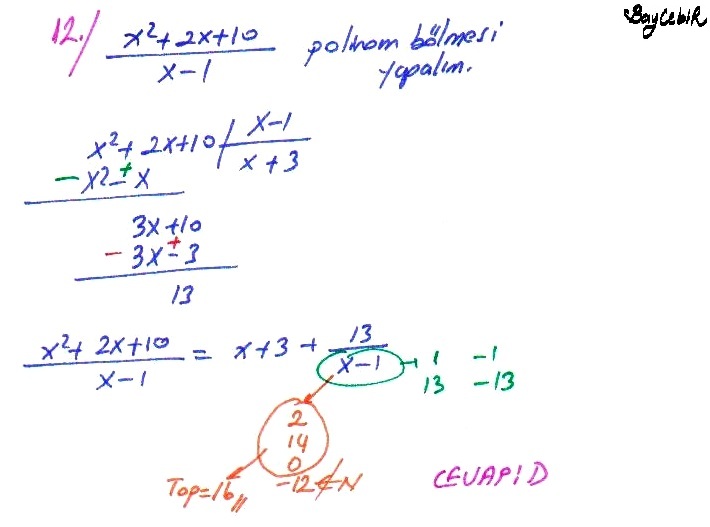 BayCebiR
12.) x²+2x+10 / x-1 polinom bölmesi
yapalım.
x²+2x+10 | x-1
x+3
- x² - x
+
3x+10
- 3x-3
+
13
x²+2x+10 / x-1 = x+3 + 13 / x-1 → 1 -1
13 -13
2
14
0
Top=16,, -12∉N
CEVAP: D